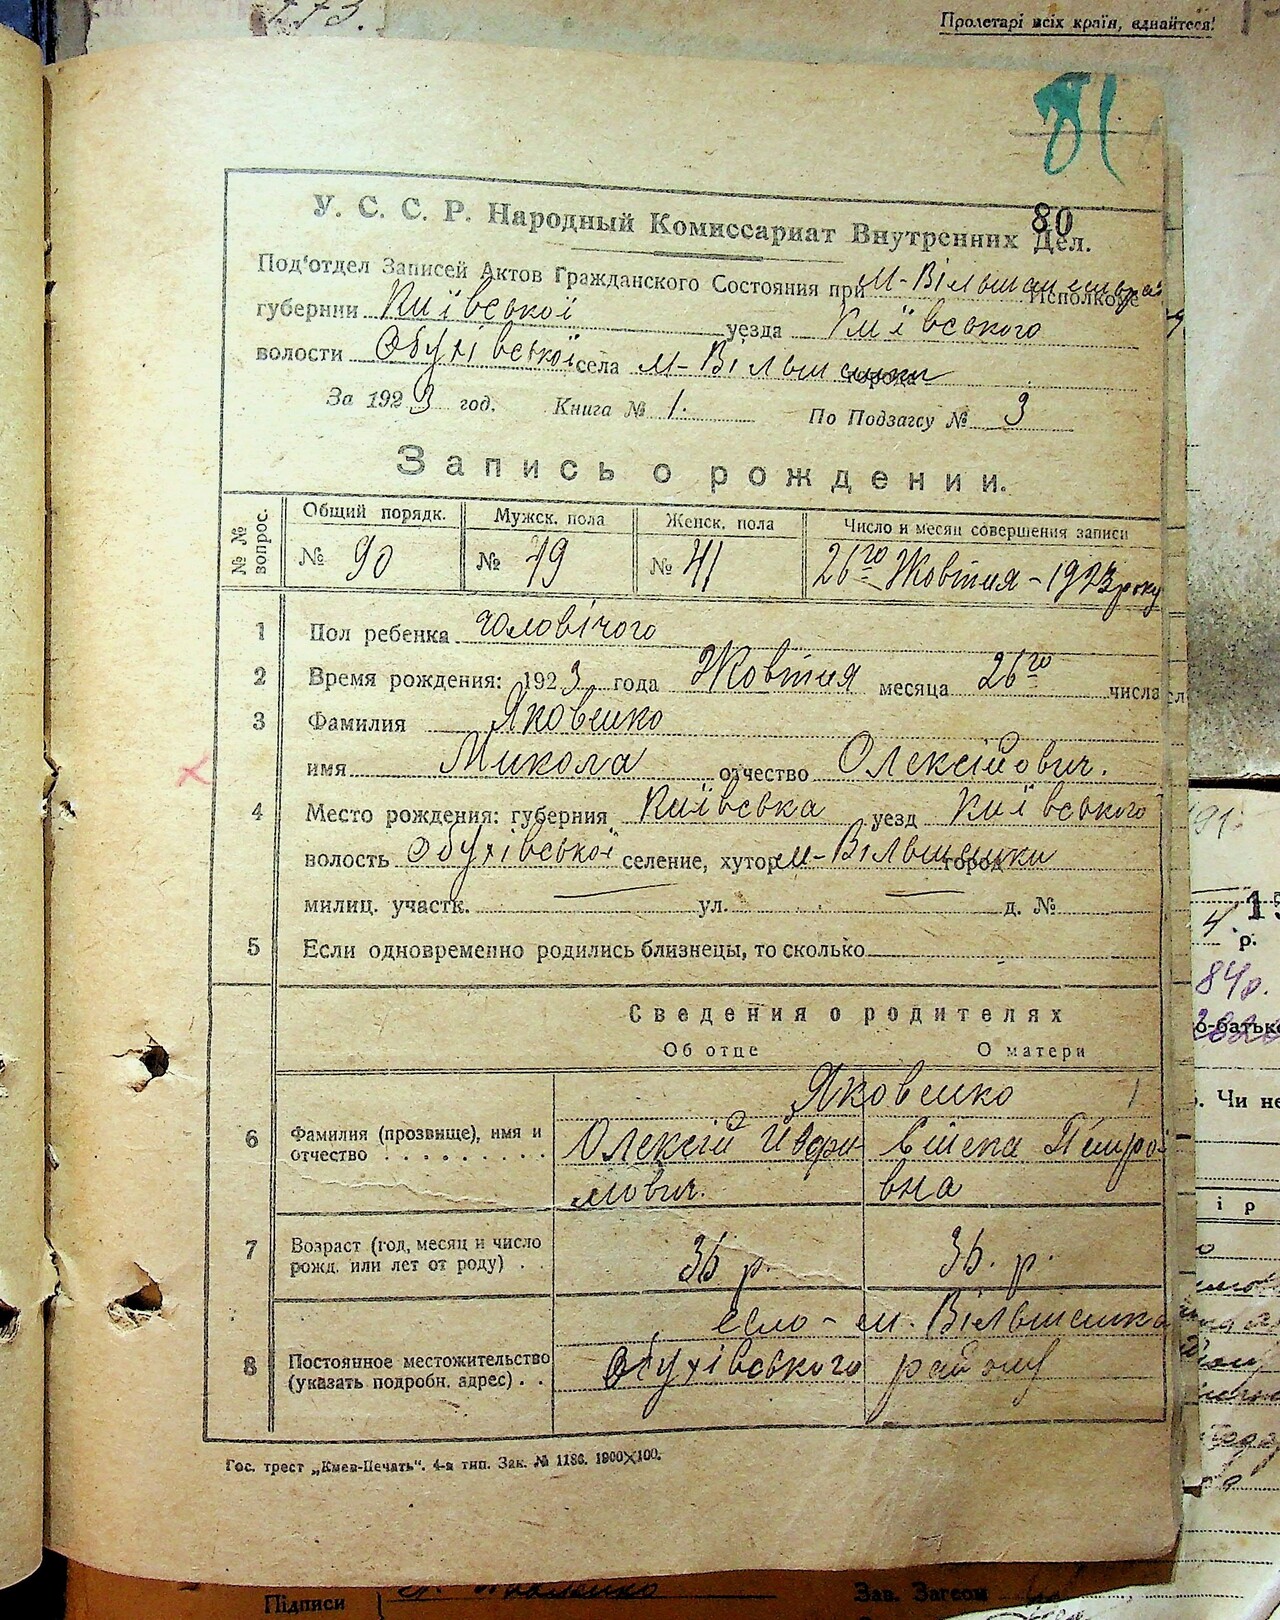 Пролетарі всіх країн, єднайтеся!
81
80
У. С. С. Р. Народный Комиссариат Внутренних Дел.
Под'отдел Записей Актов Гражданского Состояния при М-Вільшанській Исполкоме
губернии Київської уезда Київського
волости Обухівської села м-Вільшенки города
За 1923 год. Книга № 1. По Подзагсу № 3
Запись о рождении.
№ № вопрос. Общий порядк. Мужск. пола Женск. пола Число и месяц совершения записи
№ 90 № 49 № 41 26го Жовтня - 1923 року
1 Пол ребенка Чоловічого
2 Время рождения: 1923 года Жовтня месяца 26го числа
3 Фамилия Яковенко
имя Микола отчество Олексійович.
4 Место рождения: губерния Київська уезд Київського
волость Обухівської селение, хутор м-Вільшенки город
милиц. участк. — ул. — д. №
5 Если одновременно родились близнецы, то сколько
Сведения о родителях
Об отце О матери
Яковенко
6 Фамилия (прозвище), имя и Олексій Петро-
отчество . . . . . . . . . мович. вна
7 Возраст (год, месяц и число 36 р. 36. р.
рожд. или лет от роду) . .
село - м. Вільшенка
8 Постоянное местожительство Обухівського району
(указать подробн. адрес) . .
Гос. трест „Киев-Печать“. 4-я тип. Зак. № 1186. 1900×100.
Підписи Зав. Загсом